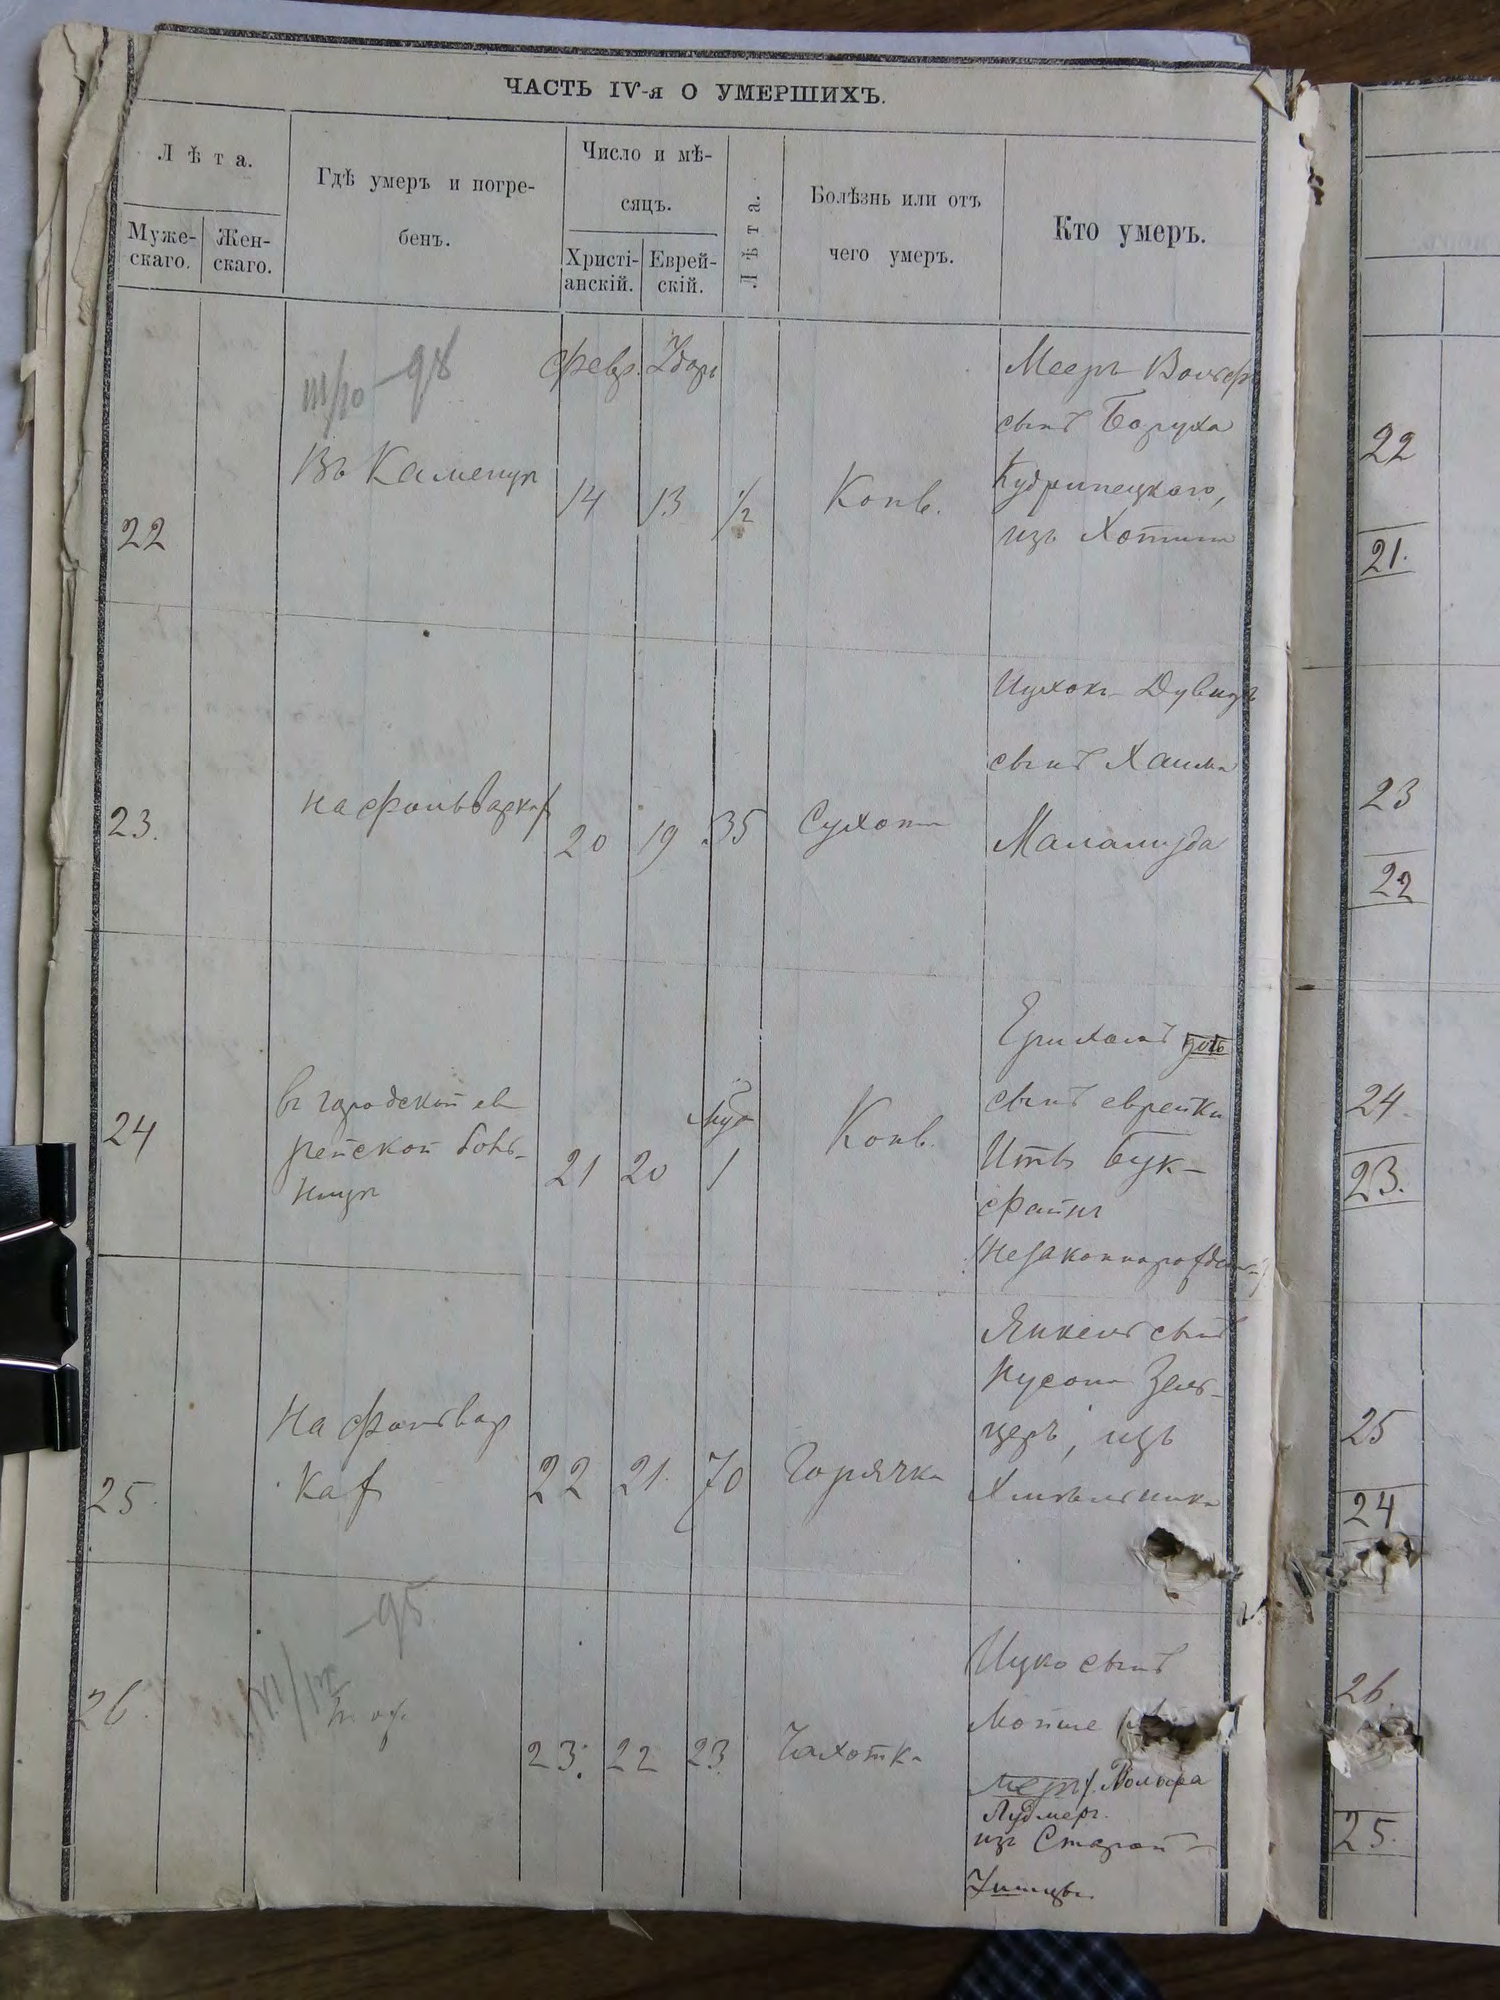 ЧАСТЬ IV-я О УМЕРШИХЪ.
Лѣта.
Муже-
скаго.
Жен-
скаго.
Гдѣ умеръ и погре-
бенъ.
Число и мѣ-
сяцъ.
Христі-
анскій.
Еврей-
скій.
Лѣта.
Болѣзнь или отъ
чего умеръ.
Кто умеръ.
22
III/10 - 98
Въ Каменцѣ
Февр.
14
13
1/2
Конв.
Мееръ Вольфъ
сынъ Боруха
Кудринецкого,
изъ Хотина
22
21.
23.
на фольварках
20
19
35
Сухоты
Ицхокъ Дувидъ
сынъ Хаима
Маламуда
23
22
24
въ городской ев
рейской боль-
ницѣ
21
20
1
Конв.
сынъ еврейки
Бук-
файнъ
незаконнорожден
24.
23.
25.
На фольвар
ках
22
21.
70
Горячка
Янкель сынъ
Нусона Зель-
церъ, изъ
Хмѣльника
25
24
26.
-95
23.
22
23
Чахотка
Ицко сынъ
Мойше
Вольфа
Лудмеръ.
изъ Старой
Ушицы.
26.
25.